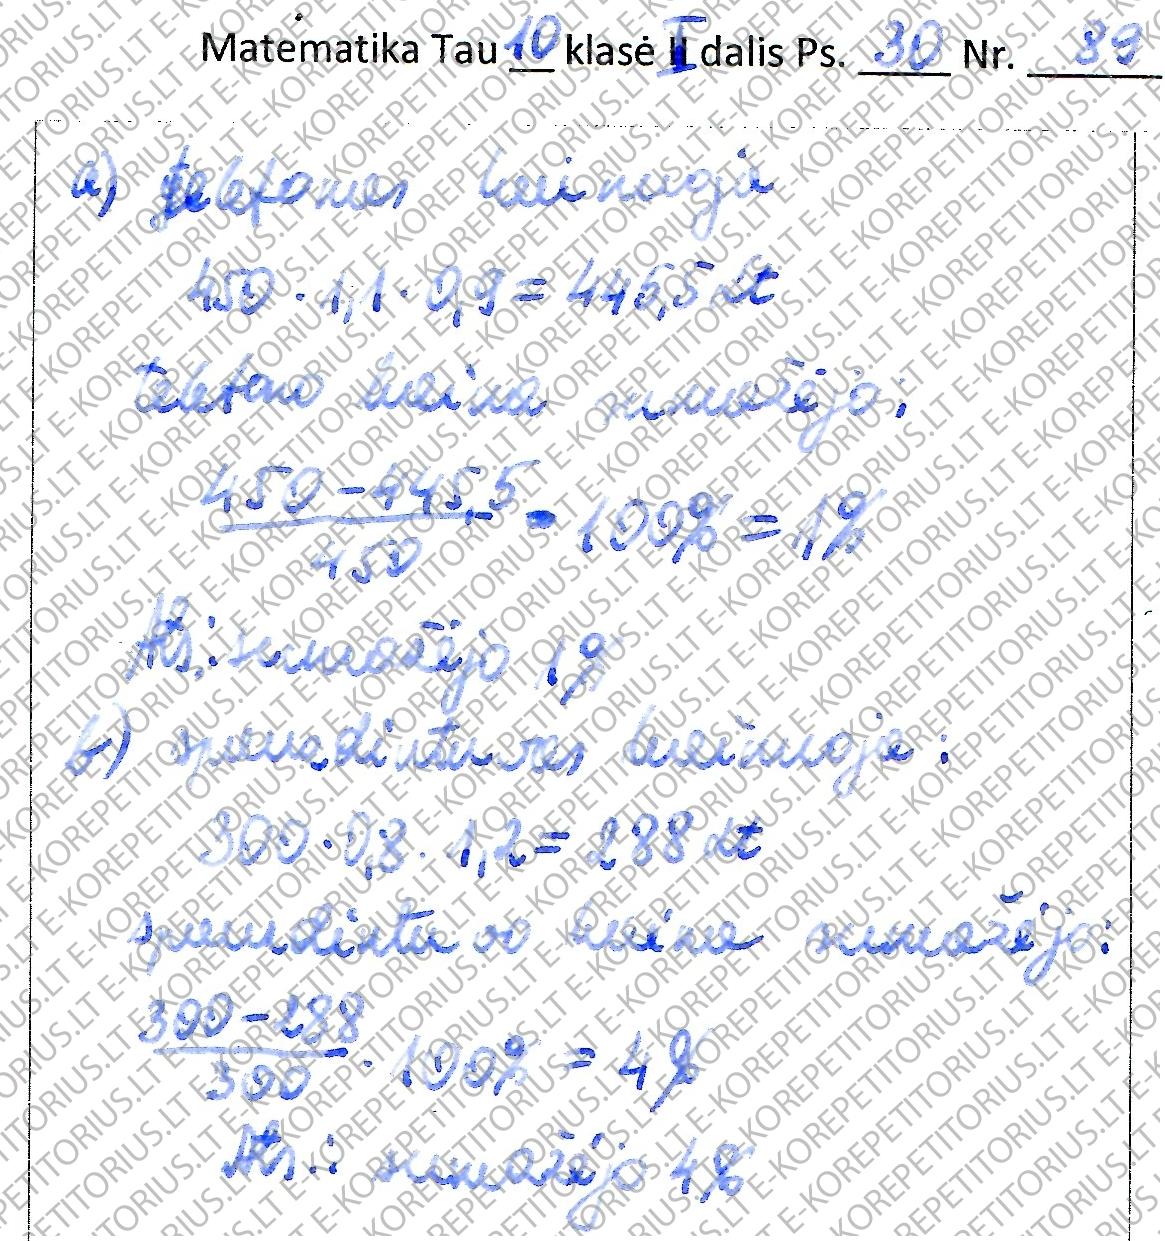 Matematika Tau 10 klasė I dalis Ps. 30 Nr. 89
a) telefonas kainuoja
450 · 1,1 · 0,9 = 445,5 Lt
telefono kaina sumažėjo:
450 - 445,5
450
· 100% = 1%
Ats.: sumažėjo 1%
b) spausdintuvas kainuoja:
300 · 0,8 · 1,2 = 288 Lt
spausdintuvo kaina sumažėjo:
300 - 288
300
· 100% = 4%
Ats.: sumažėjo 4%
E-KOREPETITORIUS.LT